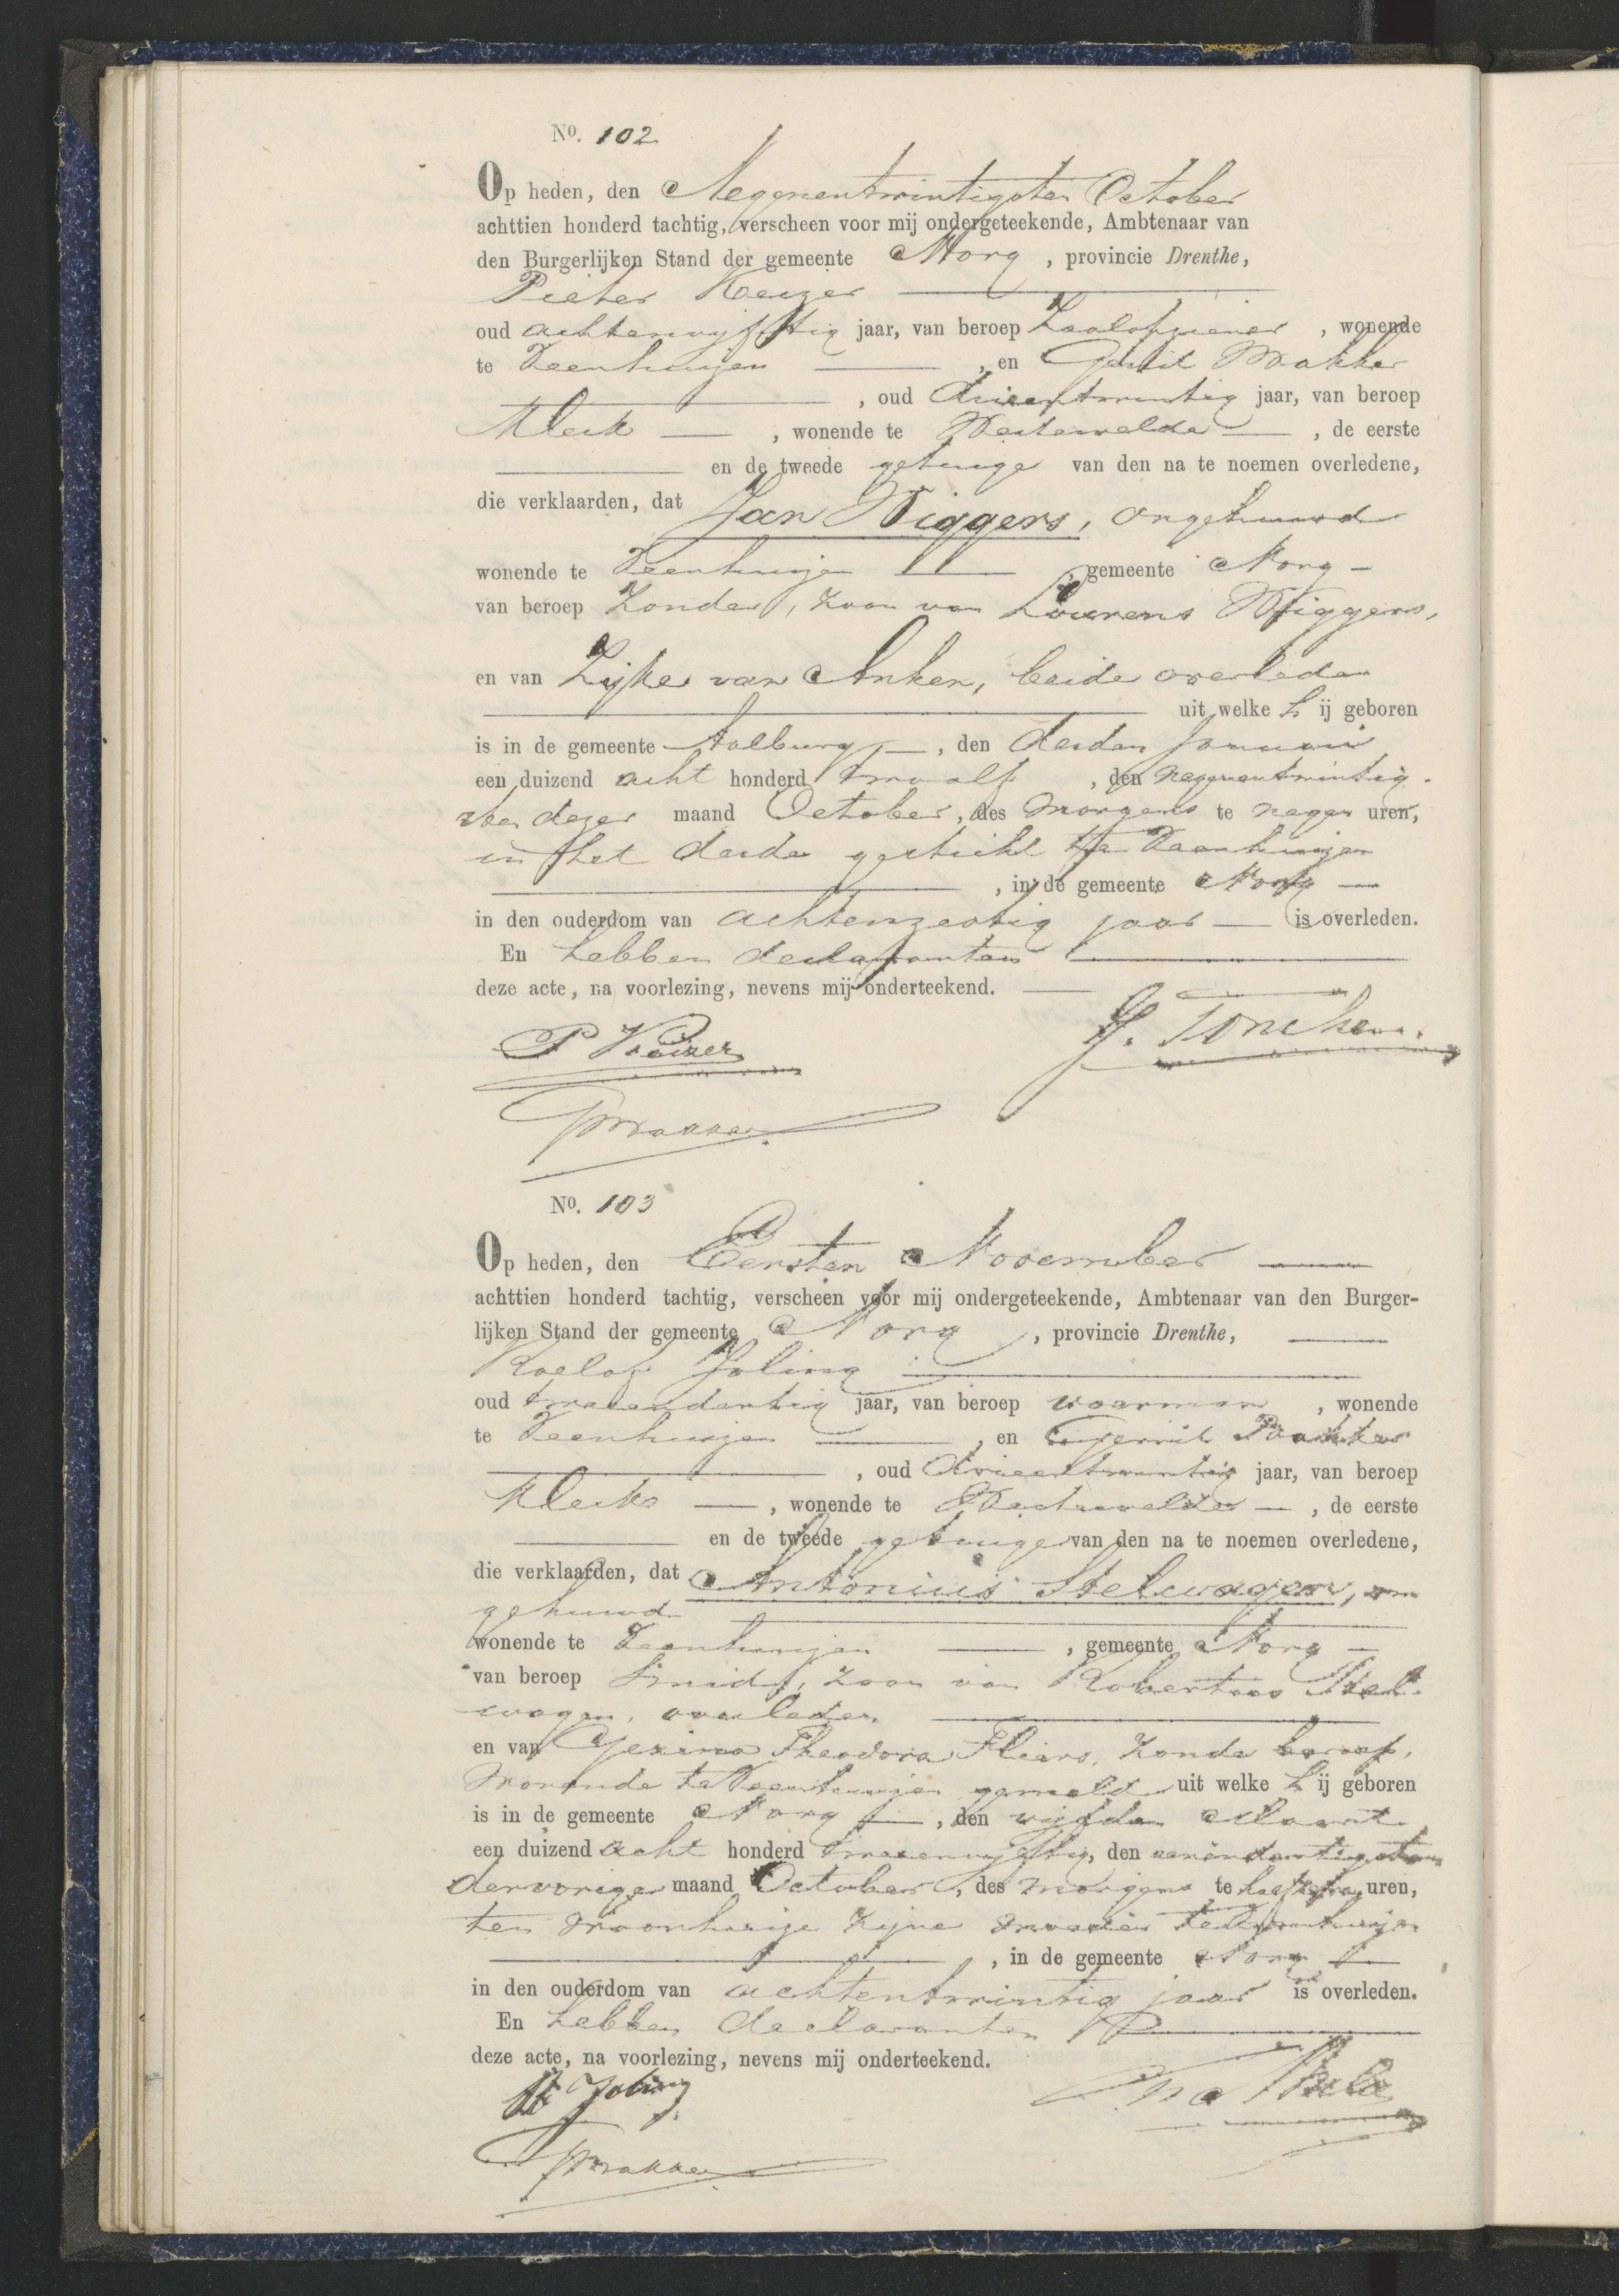 No. 102
Op heden, den Negenentwintigsten October
achttien honderd tachtig, verscheen voor mij ondergeteekende, Ambtenaar van
den Burgerlijken Stand der gemeente Norg, provincie Drenthe,
Pieter Keizer
oud achtenvijftig jaar, van beroep Zaalopziener, wonende
te Veenhuizen, en Gerrit Bakker
, oud drieentwintig jaar, van beroep
Klerk, wonende te Westervelde, de eerste
en de tweede getuige van den na te noemen overledene,
die verklaarden, dat Jan Wiggers, ongehuwd
wonende te Veenhuizen, gemeente Norg
van beroep Zonder, zoon van Lourens Wiggers,
en van Zijke van Anken, beide overleden
uit welke hij geboren
is in de gemeente Aalburg, den derden Januari
een duizend acht honderd twaalf, den negenentwintig-
sten dezer maand October, des morgens te negen uren,
in het derde gesticht te Veenhuizen
, in de gemeente Norg
in den ouderdom van achtenzestig jaar is overleden.
En hebben declaranten
deze acte, na voorlezing, nevens mij onderteekend.
P Keizer
J. Tonckens.
GBakker
No. 103
Op heden, den Eersten November
achttien honderd tachtig, verscheen voor mij ondergeteekende, Ambtenaar van den Burger-
lijken Stand der gemeente Norg, provincie Drenthe,
Roelof Joling
oud tweeendertig jaar, van beroep voerman, wonende
te Veenhuizen, en Gerrit Bakker
, oud drieentwintig jaar, van beroep
Klerk, wonende te Westervelde, de eerste
en de tweede getuige van den na te noemen overledene,
die verklaarden, dat Antonius Stelwagen, on
gehuwd
wonende te Veenhuizen, gemeente Norg
van beroep Smid, zoon van Robertus Stel-
wagen, overleden
en van Gezina Theodora Fliers, zonder beroep,
wonende te Veenhuizen gemeld uit welke hij geboren
is in de gemeente Norg, den vijfden Maart
een duizend acht honderd tweeenvijftig, den eenendertigsten
der vorige maand October, des morgens te half uren,
ten woonhuize zijne moeder te Veenhuizen
, in de gemeente Norg
in den ouderdom van achtentwintig jaar is overleden.
En hebben declaranten
deze acte, na voorlezing, nevens mij onderteekend.
R Joling
GBakker